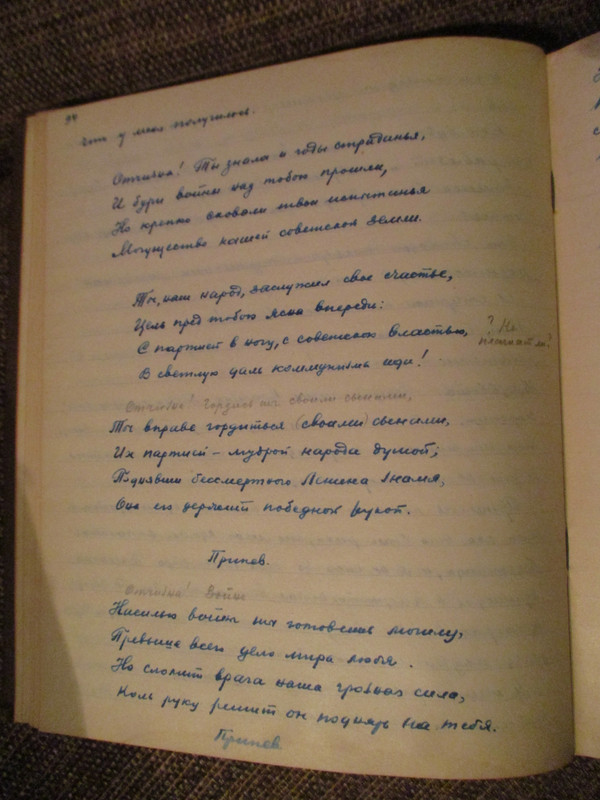 94
что у меня получилось.
Отчизна! Ты знала и годы страданья,
И бури войны над тобою прошли,
Но крепко сковали твои испытанья
Могущество нашей советской земли.
Ты, наш народ, заслужил свое счастье,
Цель пред тобою ясна впереди:
С партией в ногу, с советской властью,
? Не
плохает ли?
В светлую даль коммунизма иди!
Отчизна! Гордись ты своими сынами,
Ты вправе гордиться (своими) сынами,
Их партией – мудрой народа душой;
Поднявши бессмертного Ленина знамя,
Она его держит победной рукой.
Припев.
Отчизна! Войны
Насилью войны ты готовишь могилу,
Превыше всего дело мира любя.
Но сломит врага наша грозная сила,
Коль руку решит он поднять на тебя.
Припев